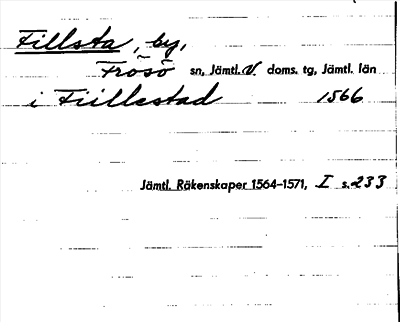 Fillsta, by,
Frösö sn, Jämtl. V. doms. tg, Jämtl. län
i Fiillestad 1566
Jämtl. Räkenskaper 1564–1571, I s. 233